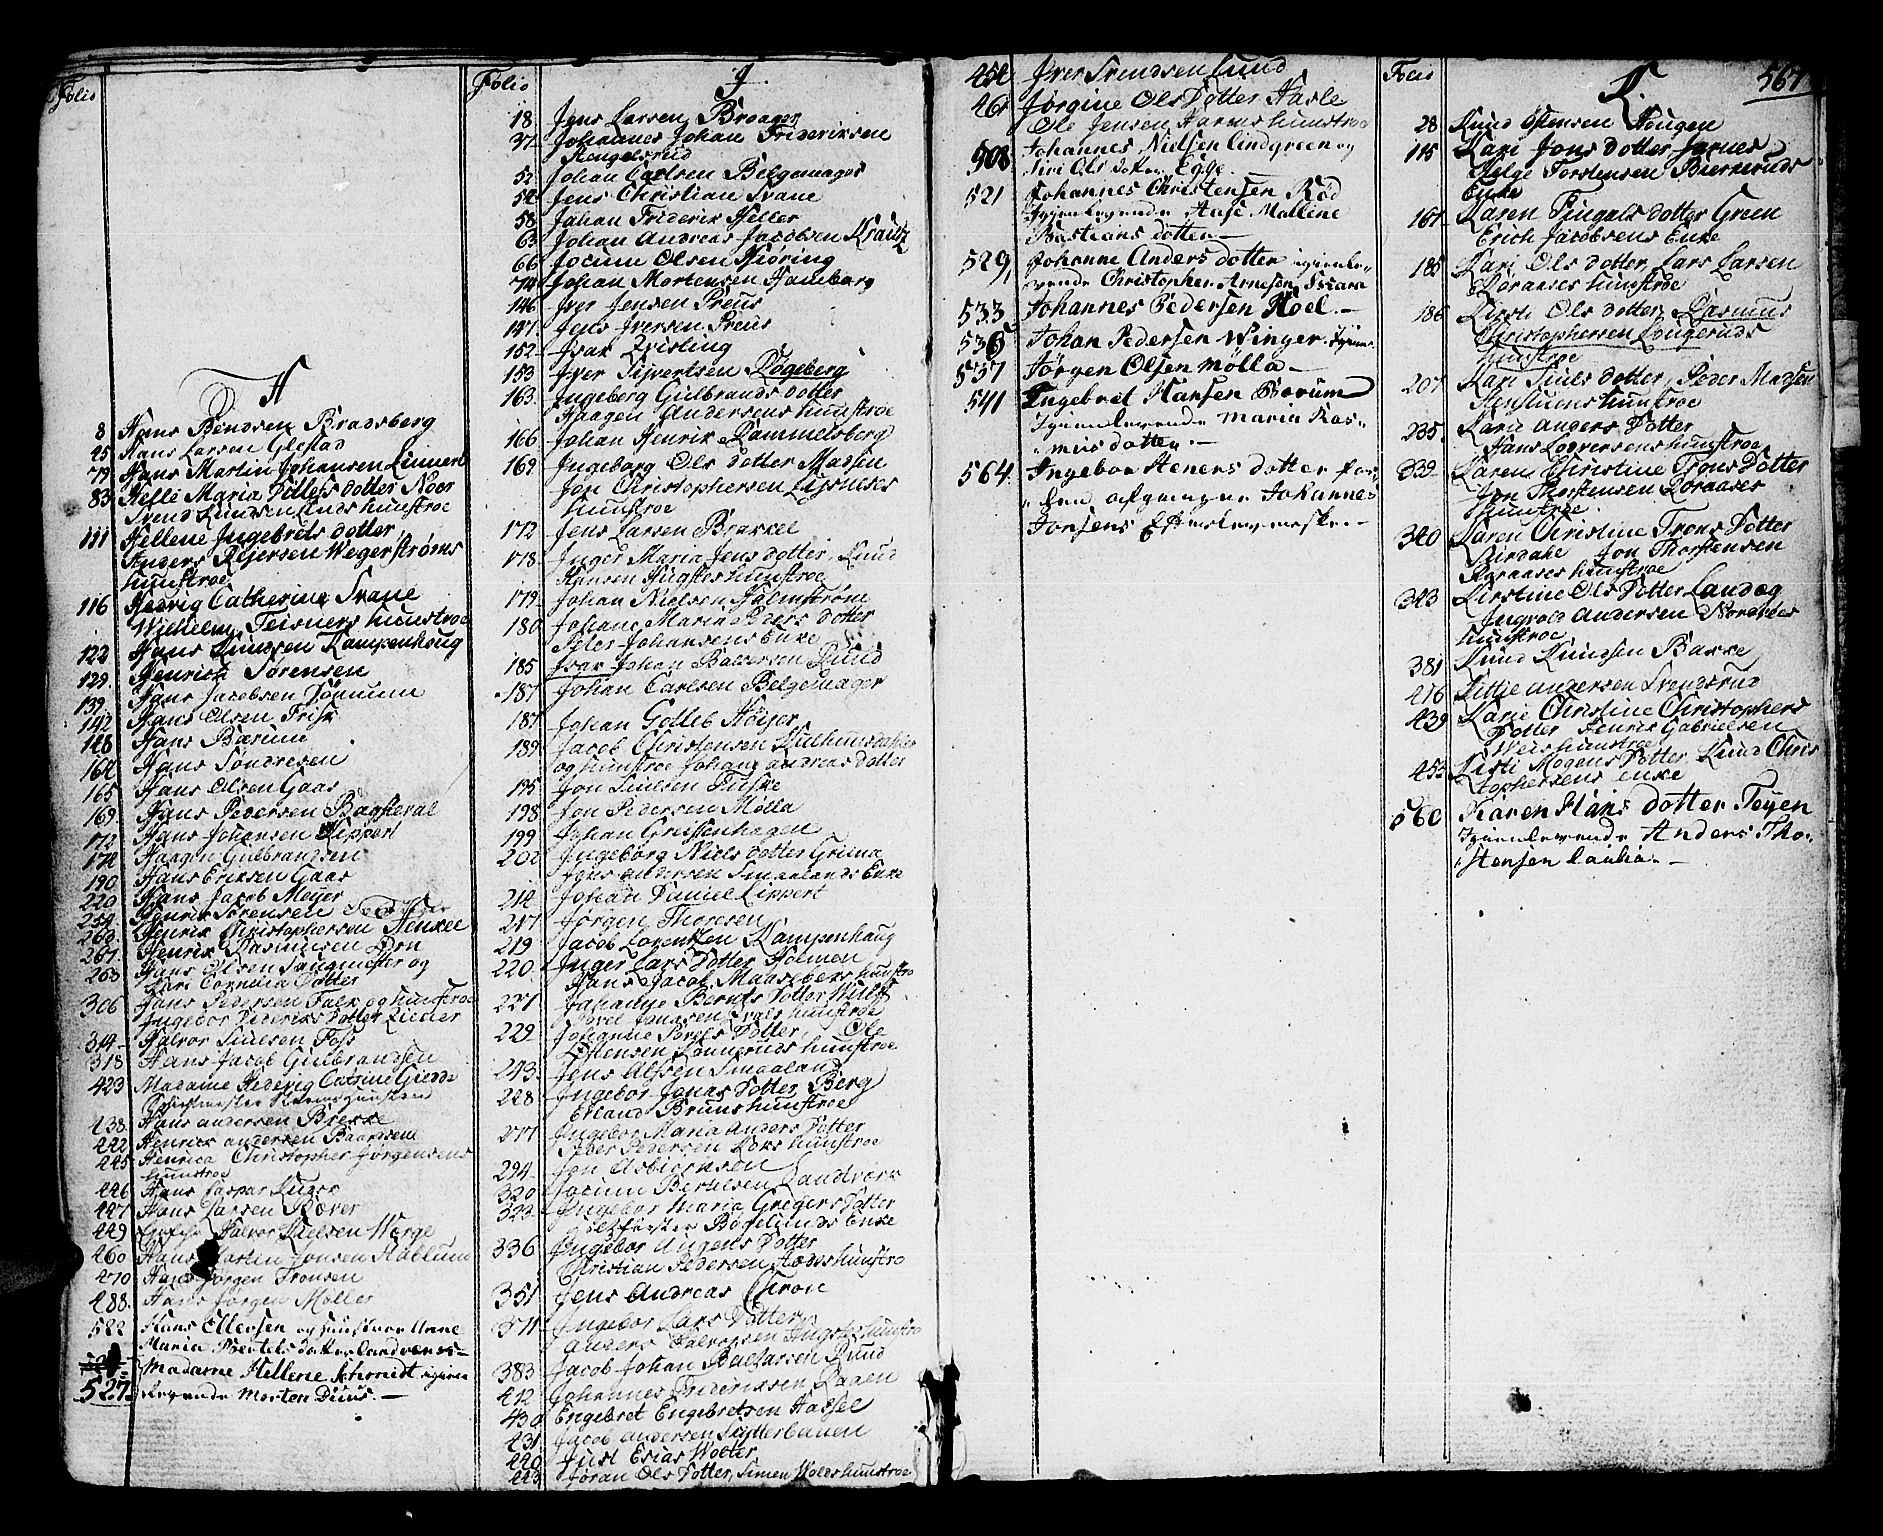 Folio
H
8 Hans Bendsen Bradsberg
25 Hans Larsen Glestad
79 Hans Martin Johansen Linnert
83 Helle Maria Ditlefs dotter Noor
Svend Knudsen Lunds hunstroe
111 Hellene Ingebrets dotter,
Anders Reiersen Wegerstrøms
hunstroe
116 Hedvig Catherina Svane
Wilhelm Teisners hunstroe
122 Hans Knudsen Kampenhoug
129. Henrich Sørensen
139. Hans Jacobsen Dømum
142 Hans Olsen Frisk
148 Hans Bærum
164 Hans Søndresen
165 Hans Olsen Gaas
169. Hans Pedersen Bagsteval
172 Hans Johansen Lippert
174 Haagen Gulbrandsen
190 Hans Eriksen Gaas
220 Hans Jacob Meyer
254. Henrik Sørensen
260. Henrik Christophersen Henkel
267. Henrik Rasmusen Løn
263 Hans Olsen Saugmester og
Kari Cornelia Dotter
306 Hans Pedersen Falk og hunstroe
Ingebor Didriks Dotter Lieller
314 Halvor Siulsen Foss
318 Hans Jacob Gulbrandsen
423 Madame Hedevig Catrine Gierdr
238. Hans andersen Brekke
442 Henrich andersen Baardsen
445 Henrica Christopher Jørgensens
hunstroe
446 Hans Caspar Kuger
447 Hans Larsen Røver
449 Halvor Nielsen Werge
460 Hans Morten Jonsen Hablum
470 Hans Jørgen Tronsen
488. Hans Jørgen Møller
522 Hans Ellersen og hunstroe Anne
Maria Bertels dotter Landvens
527 Madame Hellene Schmidt igien
levende Morten Duus. —
Folio
J
18. Jens Larsen Brager
37. Johannes Johan Frideriksen
Rengelsrud
52. Johan Carlsen Belgemager
54. Jens Christian Svane
58. Johan Friderik Heller
63 Johan Andreas Jacobsen Krautz
66 Jocum Olsen Kiøring
74 Johan Mortensen Hamborg
146 Iver Jensen Preus
147 Jens Iversen Preus
152. Isak Qvisling
153 Iver Sivertsen Røgeberg
163. Ingeberg Gulbrands dotter
Haagen Andersens hunstroe
166 Johan Henrik Rammelsberg
169. Ingeborg Ols dotter Madsen
Jon Christophersen Lysneses
hunstroe
172 Jens Larsen Brakkel
178. Inger Maria Jens dotter, Knud
Hansen Hugsters hunstroe
179. Johan Nielsen Palmstrøm
180. Johane Maria Peders dotter
Peter Johansens Enke
185 Isak Johan Baltersen Rund
187 Johan Carlsen Belgemager
187. Johan Gotlieb Høyer
189. Jacob Christensen Kulhunsdahler
og hunstroe Johane andreas dotter
195 Jon Siulsen Fuske
198 Jon Pedersen Mølla
199 Johan Grissenhagen
202 Ingeborg Niels dotter Grima
Jens andersen Smaalands Enke
214 Johan Daniel Lippert
217 Jørgen Thoresen
219 Jacob Lorentzen Kampenhaug
220. Inger Lars Dotter Holmen
Hans Jacob Maasebers hunstro
221 Johanne Bernts Dotter Wulff
Poul Jonasen hunstroe
229. Johanne Poels Dotter, Ole
Estensen Lonneruds hunstroe
243. Jens Alfsen Smaaland
228 Ingebor Jonas Dotter Berg
Erland Bruns hunstroe
277 Ingebor Maria Anders Dotter
Peder Pedersen Loks hunstroe
294. Jon Asbiørnsen
320 Jocum Bertelsen Landverk
323. Ingebor Maria Gregers Dotter
Bøgelunds Enke
336 Ingebor Augens Dotter
Christian Pedersen Aades hunstro
351 Jens Andreas Throne
371 Ingebor Lars Dotter
anders Halvorsen Hugsters hunstro
383 Jacob Johan Baltassen Rund
412 Johannes Frideriksen Raaen
430 Engebret Engebretsen Hassel
431 Jacob andersen Skytterbauen
440 Just Esias Wolter
443. Jøran Ols Dotter, Simen Wolds hunstroe
454 Iver Svendsen Lund
461 Jørgine Ols Dotter Hasle
Ole Jensen Harens hunstroe
508 Johannes Nielsen Lindgreen og
Siri Ols dotter Egge.
521 Johannes Christensen Rød
Igienlevende Aase Mallene
Bastians dotter —
529, Johanne Anders dotter igienle-
vende Christopher Arnesen Skara
533 Johannes Pedersen Roel. —
536 Johan Pedersen Winger. Igien.
537 Jørgen Olsen Mølla —
541 Ingebret Hansen Borum
Igienlevende Maria Ras-
mus dotter. —
564. Ingebor Steners dotter for-
hen afgangne Johannes
Torsens Efterleveneske. —
Folio
K.
567
28 Knud Østensen Hougen
115 Kari Jons dotter Jarnes
Helge Torstensen Bierkeruds
Enke
167 Karen Pingels dotter Green
Erich Jacobsens Enke
185 Kari Ols dotter, Lars Larsen
Roraases hunstroe
186 Kirsti Ols dotter, Rasmus
Christophersen Lougeruds
hunstroe
207 Kari Siuls dotter, Peder Madsen
Stenstuens hunstroe
235. Karie anders Dotter
Hans Loversens hunstroe
339. Karen Christine Trons Dotter
Jon Thorstensen Roraases
hunstroe.
340 Karen Christine Trons Dotter
Lirdahl Jon Thorstensen
Roraases hunstroe
343 Kirstine Ols Dotter Landøg
Ingvold Andersen Norenses
hunstroe
381 Knud Knudsen Bakke
416 Kittie andersen Svendsrud
439 Karie Christine Christophers
Dotter Henrik Gabrielsen
Weis hunstroe
453 Kisti Mogens Dotter Knud Chris
tophersens enke
560 Karen Hans dotter Teyen
Igienlevende Anders Tho-
stensen Lauka. —